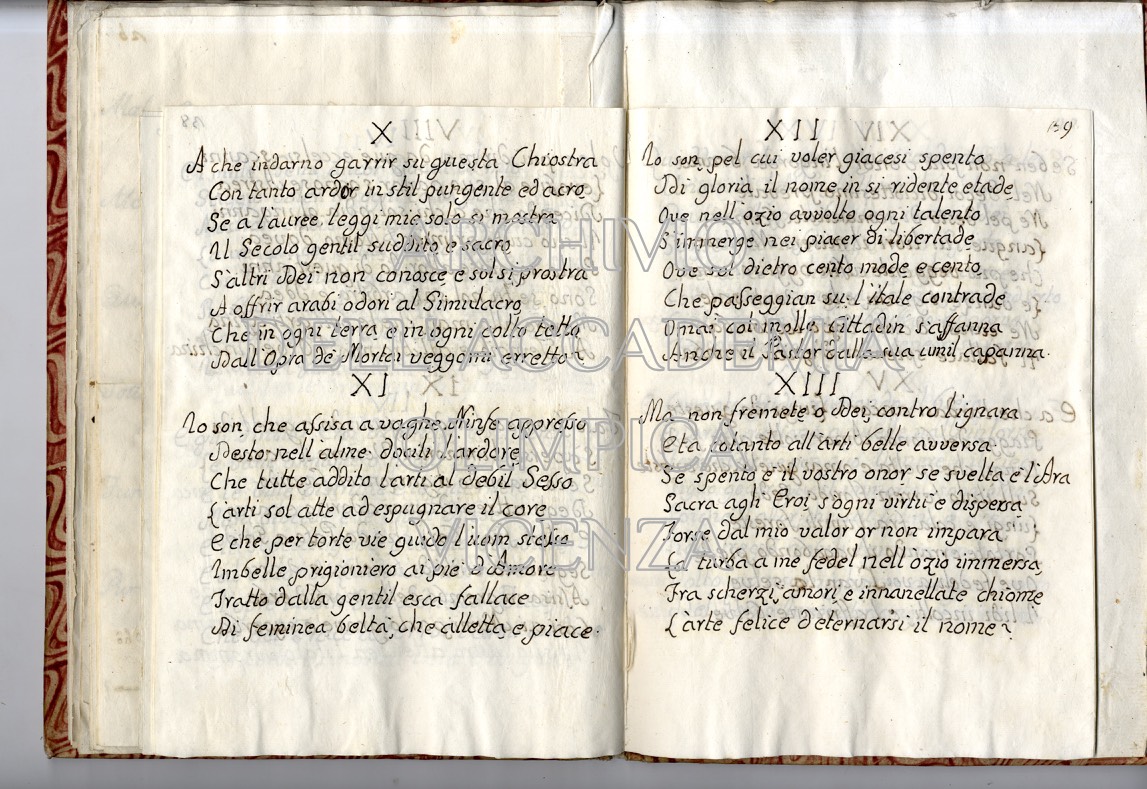 138
X
A che indarno garrir su questa Chiostra
Con tanto ardor in stil pungente ed acro
Se a l'auree leggi mie solo si mostra
Il Secolo gentil suddito e sacro
S'altri Dei non conosce e sol si prostra
A offrir arabi odori al Simulacro
Che in ogni terra e in ogni colto tetto
Dall'Opra de' Mortai veggomi erretto
XI
Io son, che assisa a vaghe Ninfe appresso
Desto nell'alme docili l'ardore
Che tutte addito l'arti al debil Sesso
L'arti sol atte ad espugnare il core
E che per torte vie guido l'uom stesso
Imbelle prigioniero ai piè d'Amore
Tratto dalla gentil esca fallace
Di feminea beltà, che alletta e piace.
139
XII
Io son, pel cui voler giacesi spento
Di gloria il nome in sì ridente etade
Ove nell'ozio avvolto ogni talento
S'immerge nei piacer di libertade
Ove sol dietro cento mode e cento
Che passeggian su l'itale contrade
Omai col molle Cittadin s'affanna
Anche il Pastor dalla sua umil capanna.
XIII
Ma non fremete o Dei contro l'ignara
Età cotanto all'arti belle avversa
Se spento è il vostro onor se svelta è l'Ara
Sacra agli Eroi s'ogni virtù è dispersa
Forse dal mio valor or non impara
La turba a me fedel nell'ozio immersa
Fra scherzi, amori e innanellate chiome
L'arte felice d'eternarsi il nome
ARCHIVIO
DELL'ACCADEMIA
OLIMPICA
VICENZA